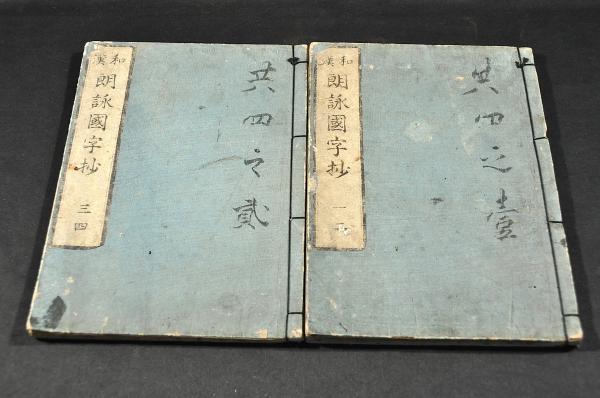 和漢
朗詠國字抄
一二
共四之壹
和漢
朗詠國字抄
三四
共四之貳